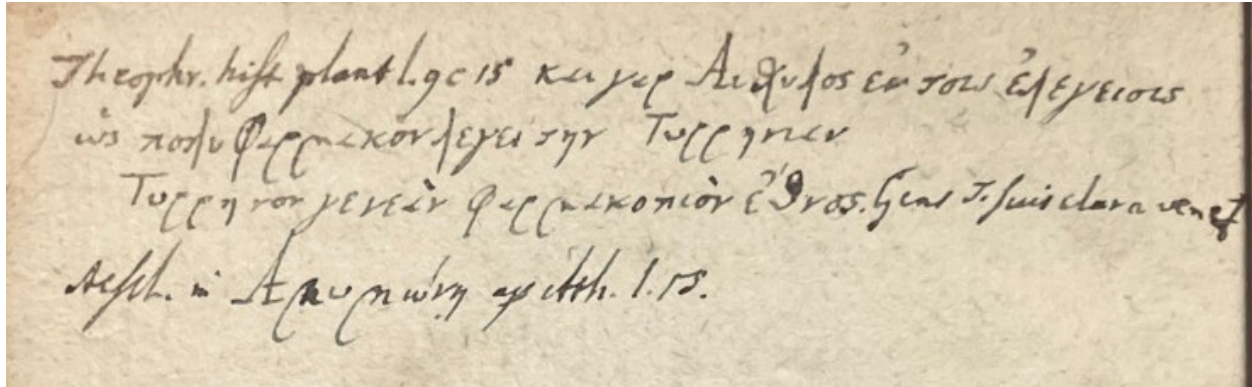 Theophr. hist plant l. 9 c 15 και γαρ Αισχυλος εν τοις ἐλεγειοις
ὡς πολυφαρμακον λεγει την Τυρρηνιαν
Τυρρηνον γενεὰν φαρμακοπιὸν ἔθνος. Gens T. suis clara venef
Aesch. in ap Ath. l. 15.